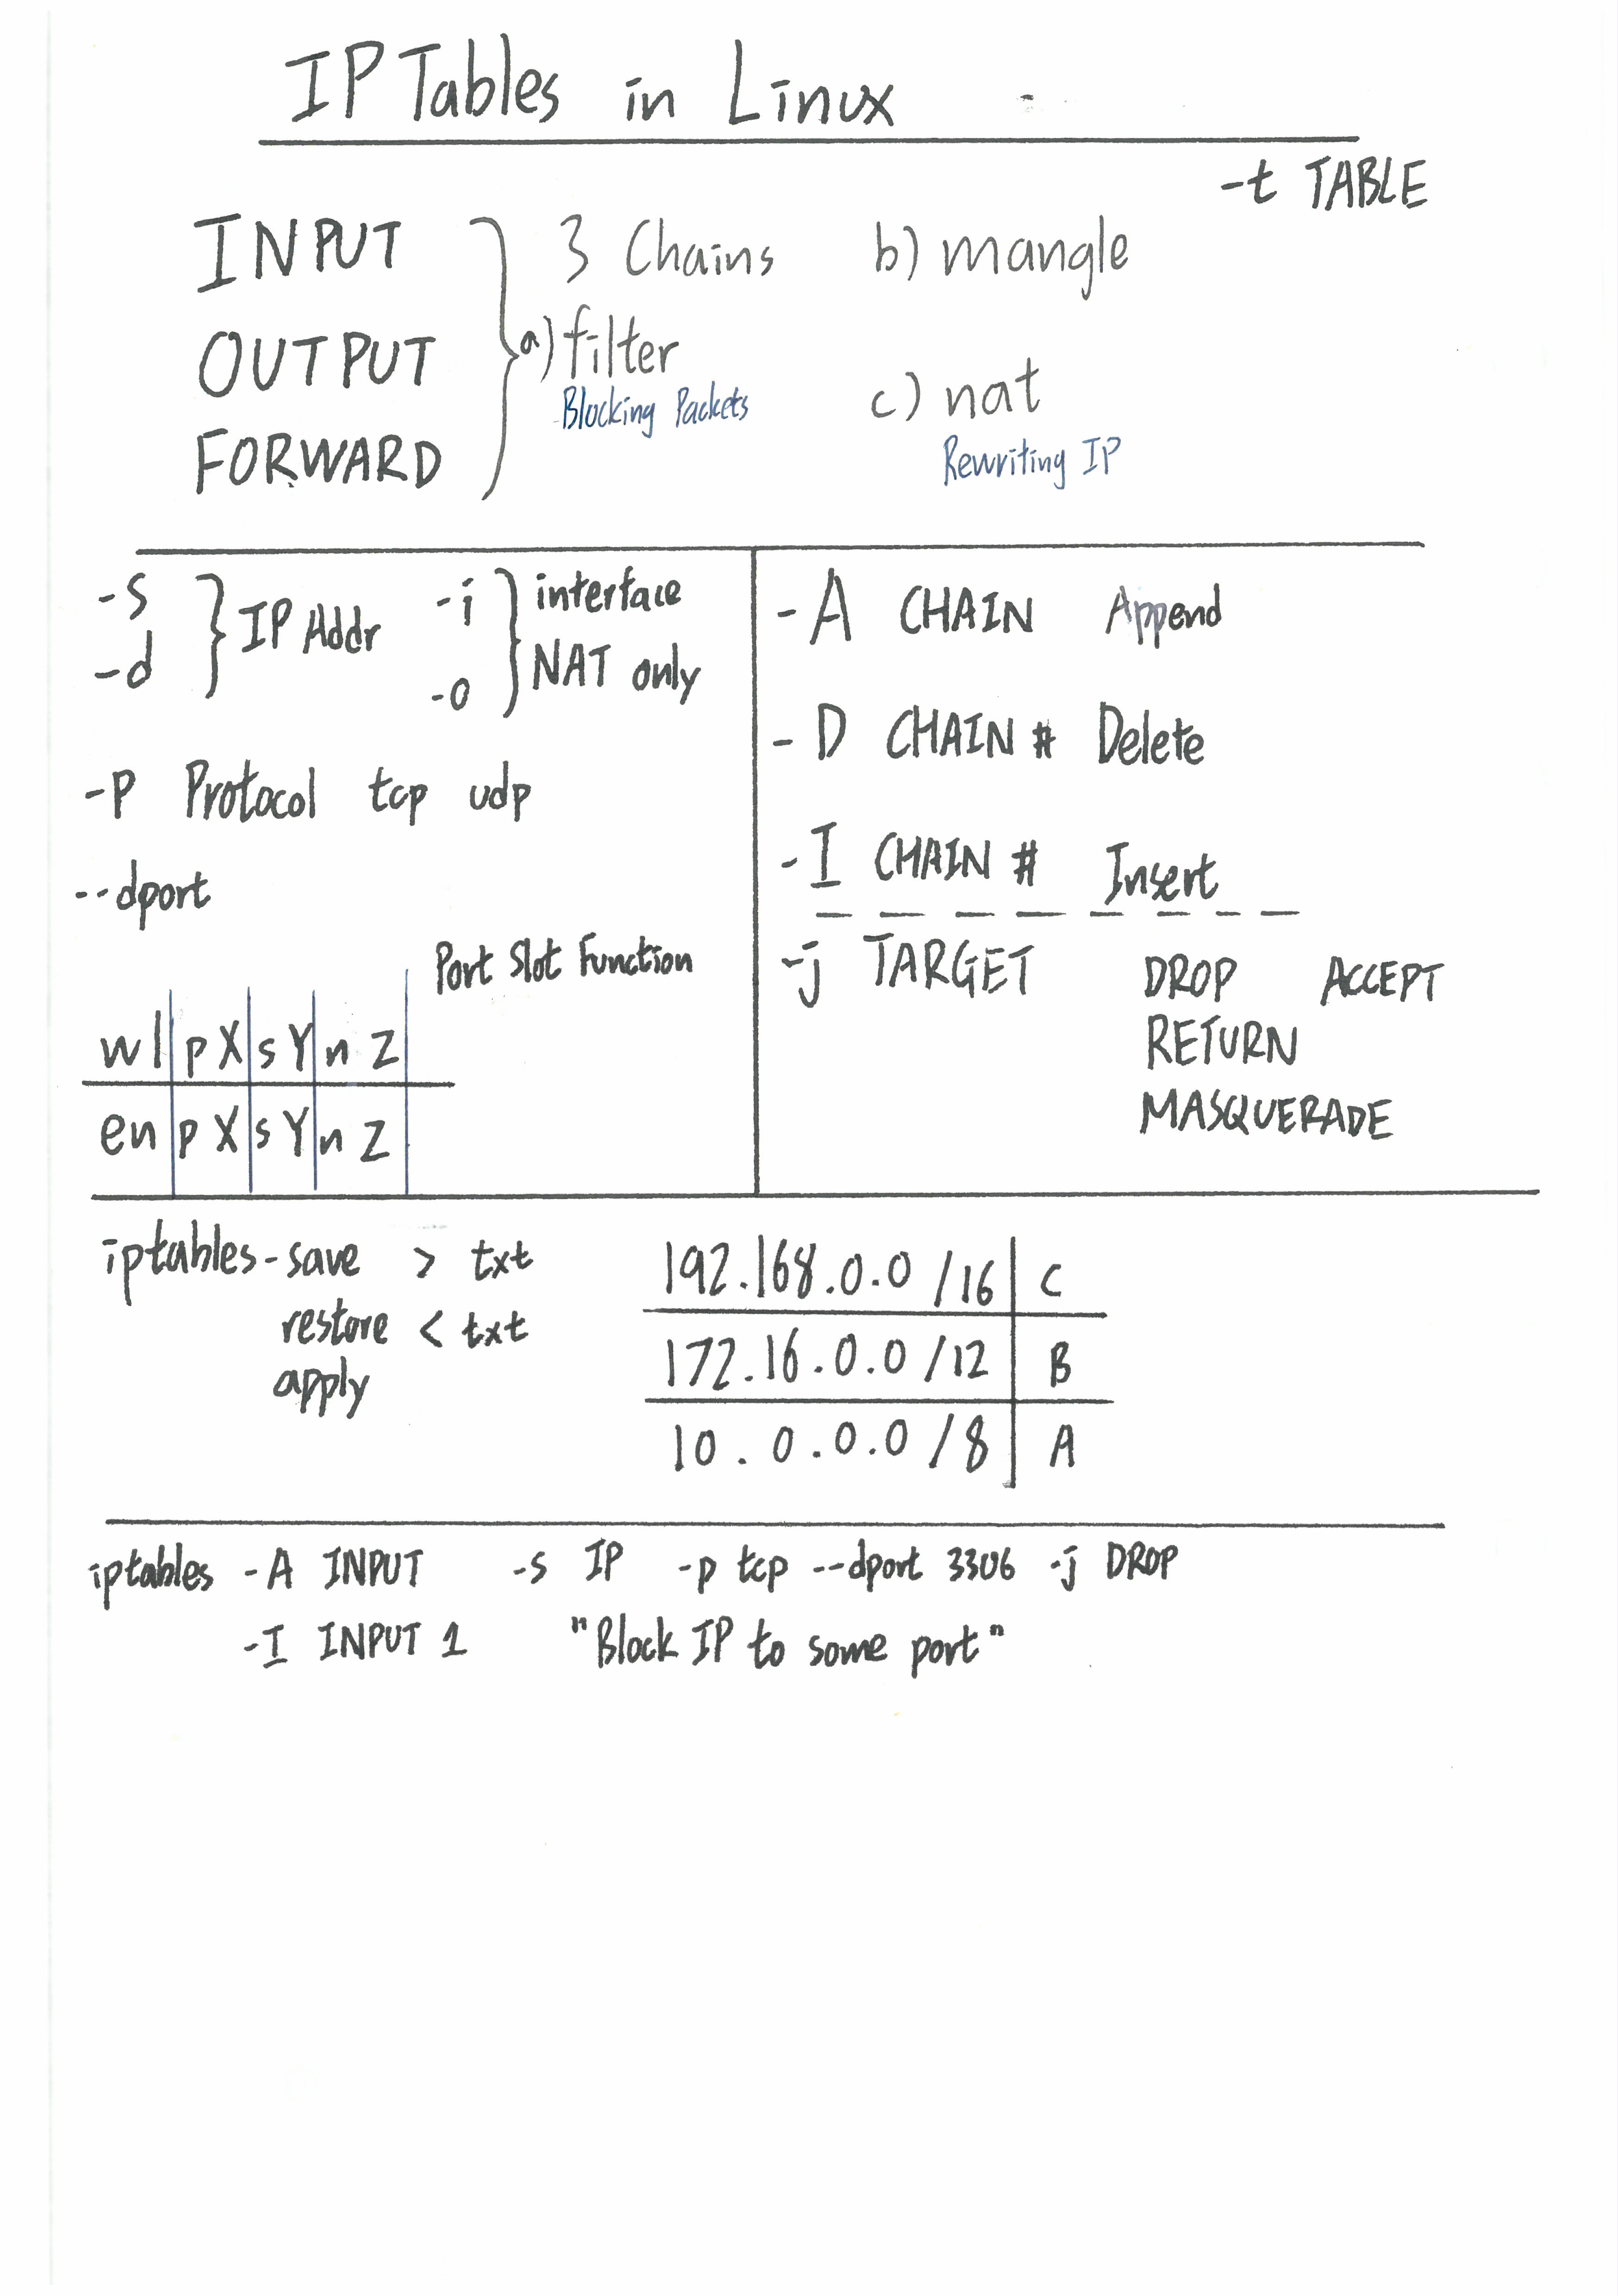 IP Tables in Linux
-t TABLE
INPUT
OUTPUT
FORWARD
3 Chains
a) filter
Blocking Packets
b) mangle
c) nat
Rewriting IP
-s
-d
IP Addr
-i
-o
interface
NAT only
-p Protocol tcp udp
--dport
Port Slot Function
wl pX sY nZ
en pX sY nZ
-A CHAIN Append
-D CHAIN # Delete
-I CHAIN # Insert
-j TARGET DROP ACCEPT
RETURN
MASQUERADE
iptables-save > txt
restore < txt
apply
192.168.0.0 /16 C
172.16.0.0 /12 B
10.0.0.0 /8 A
iptables -A INPUT -s IP -p tcp --dport 3306 -j DROP
-I INPUT 1 "Block IP to some port"